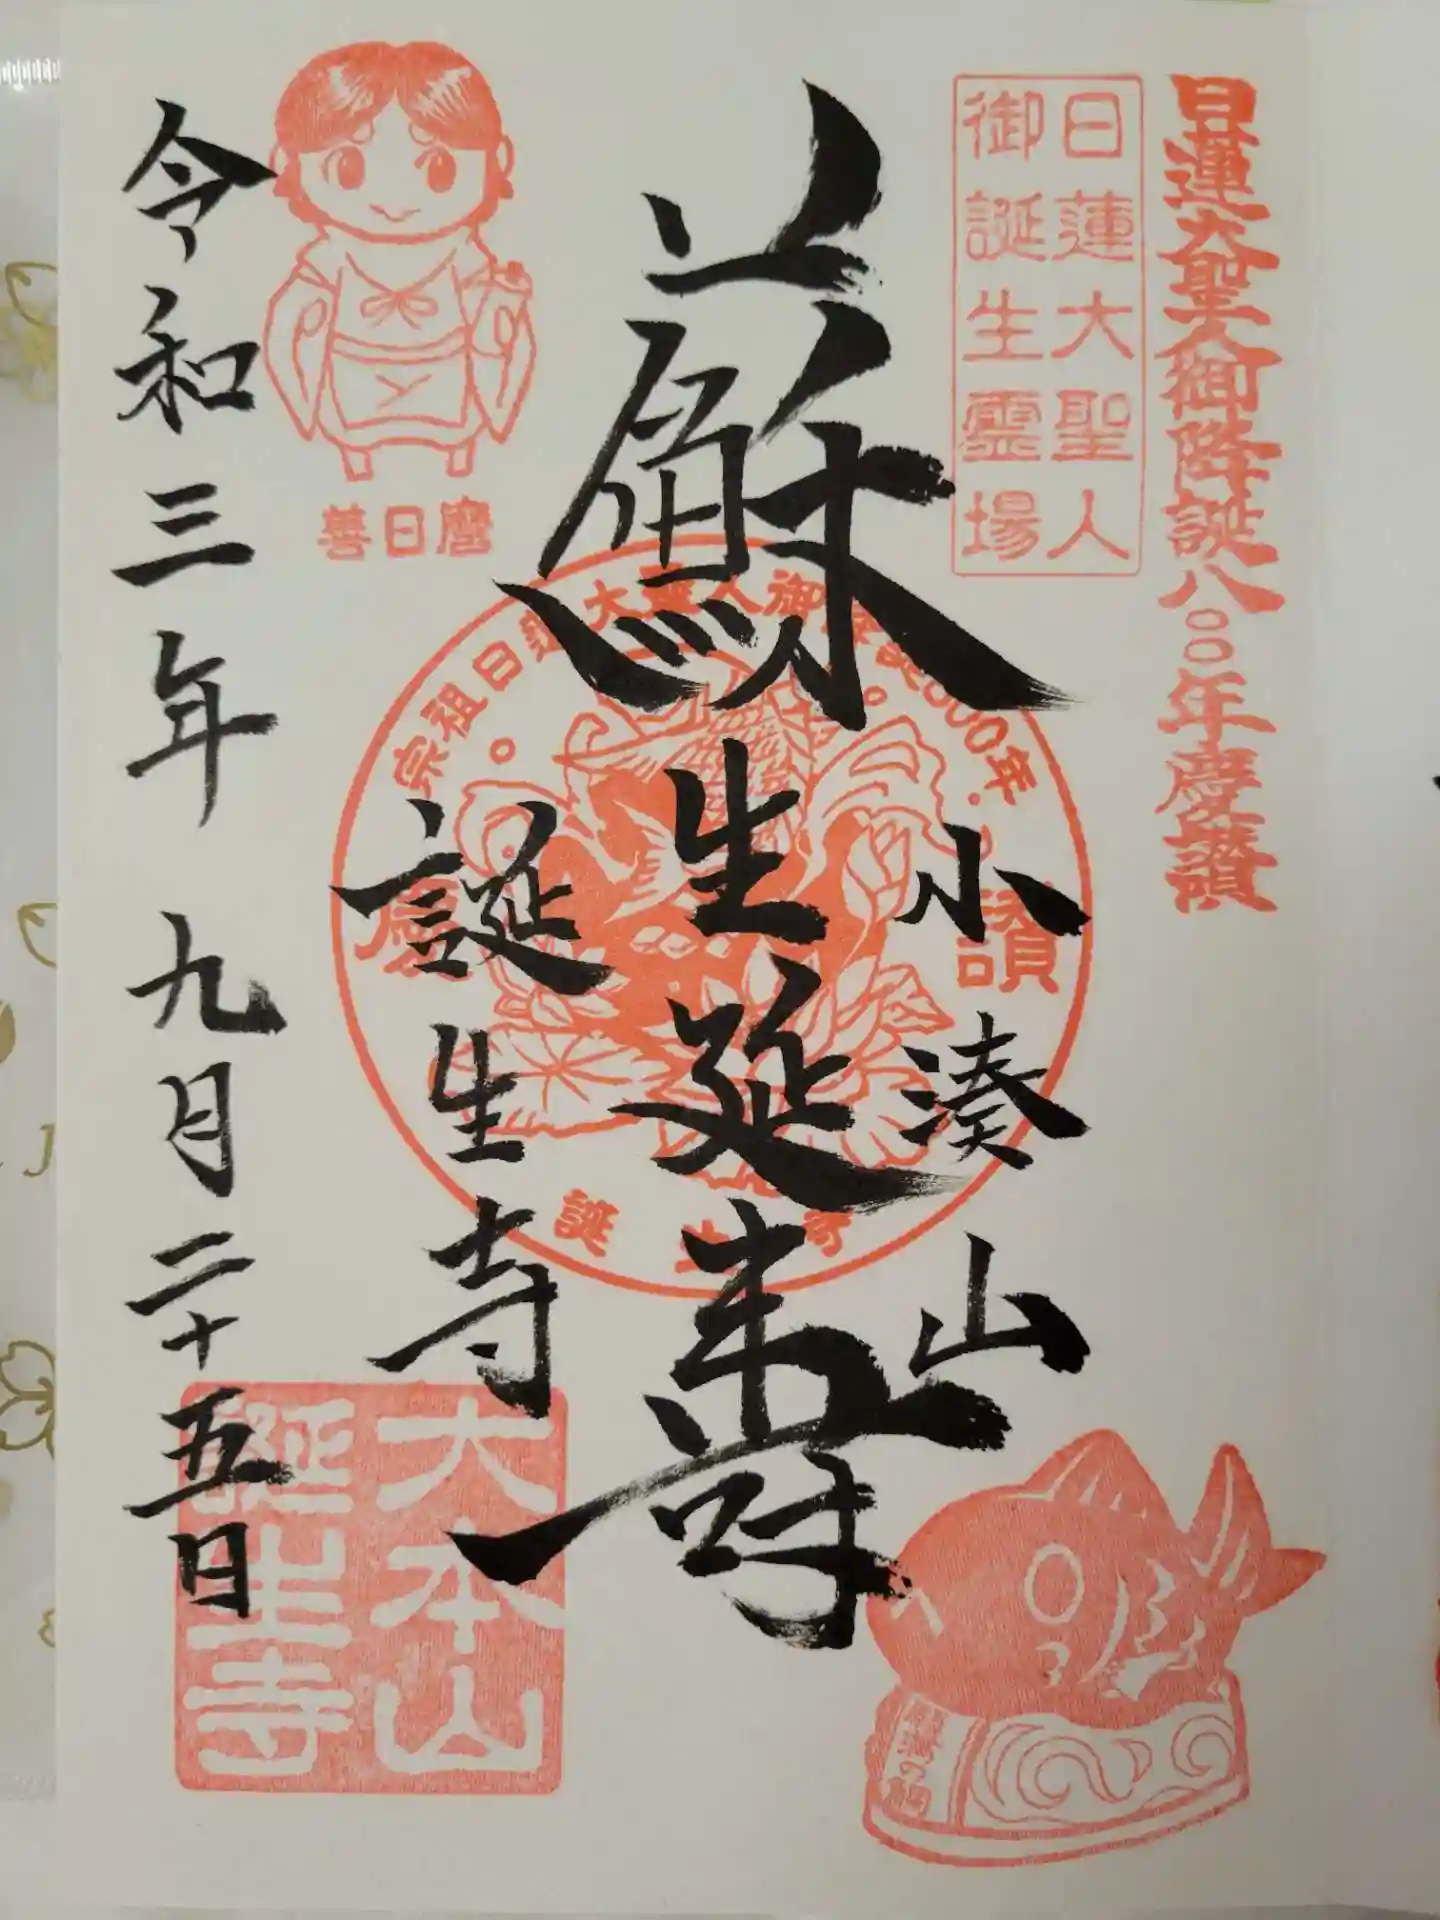 日蓮大聖人御降誕八〇〇年慶讃
日蓮大聖人
御誕生霊場
小湊山
蘇生延寿
誕生寺
令和三年 九月二十五日
善日麿
宗祖日蓮大聖人御降誕800年
慶讃
誕生寺
大本山
誕生寺